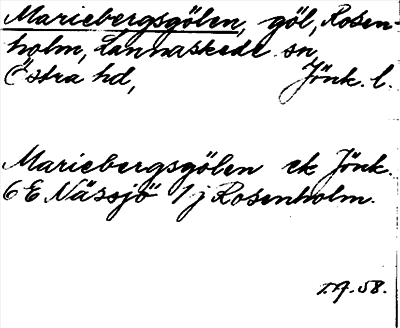 Mariebergsgölen, göl, Rosen-
holm, Lannaskede sn,
Östra hd, Jönk. l.
Mariebergsgölen ek Jönk.
6E Nässjö 1j Rosenholm.
58.